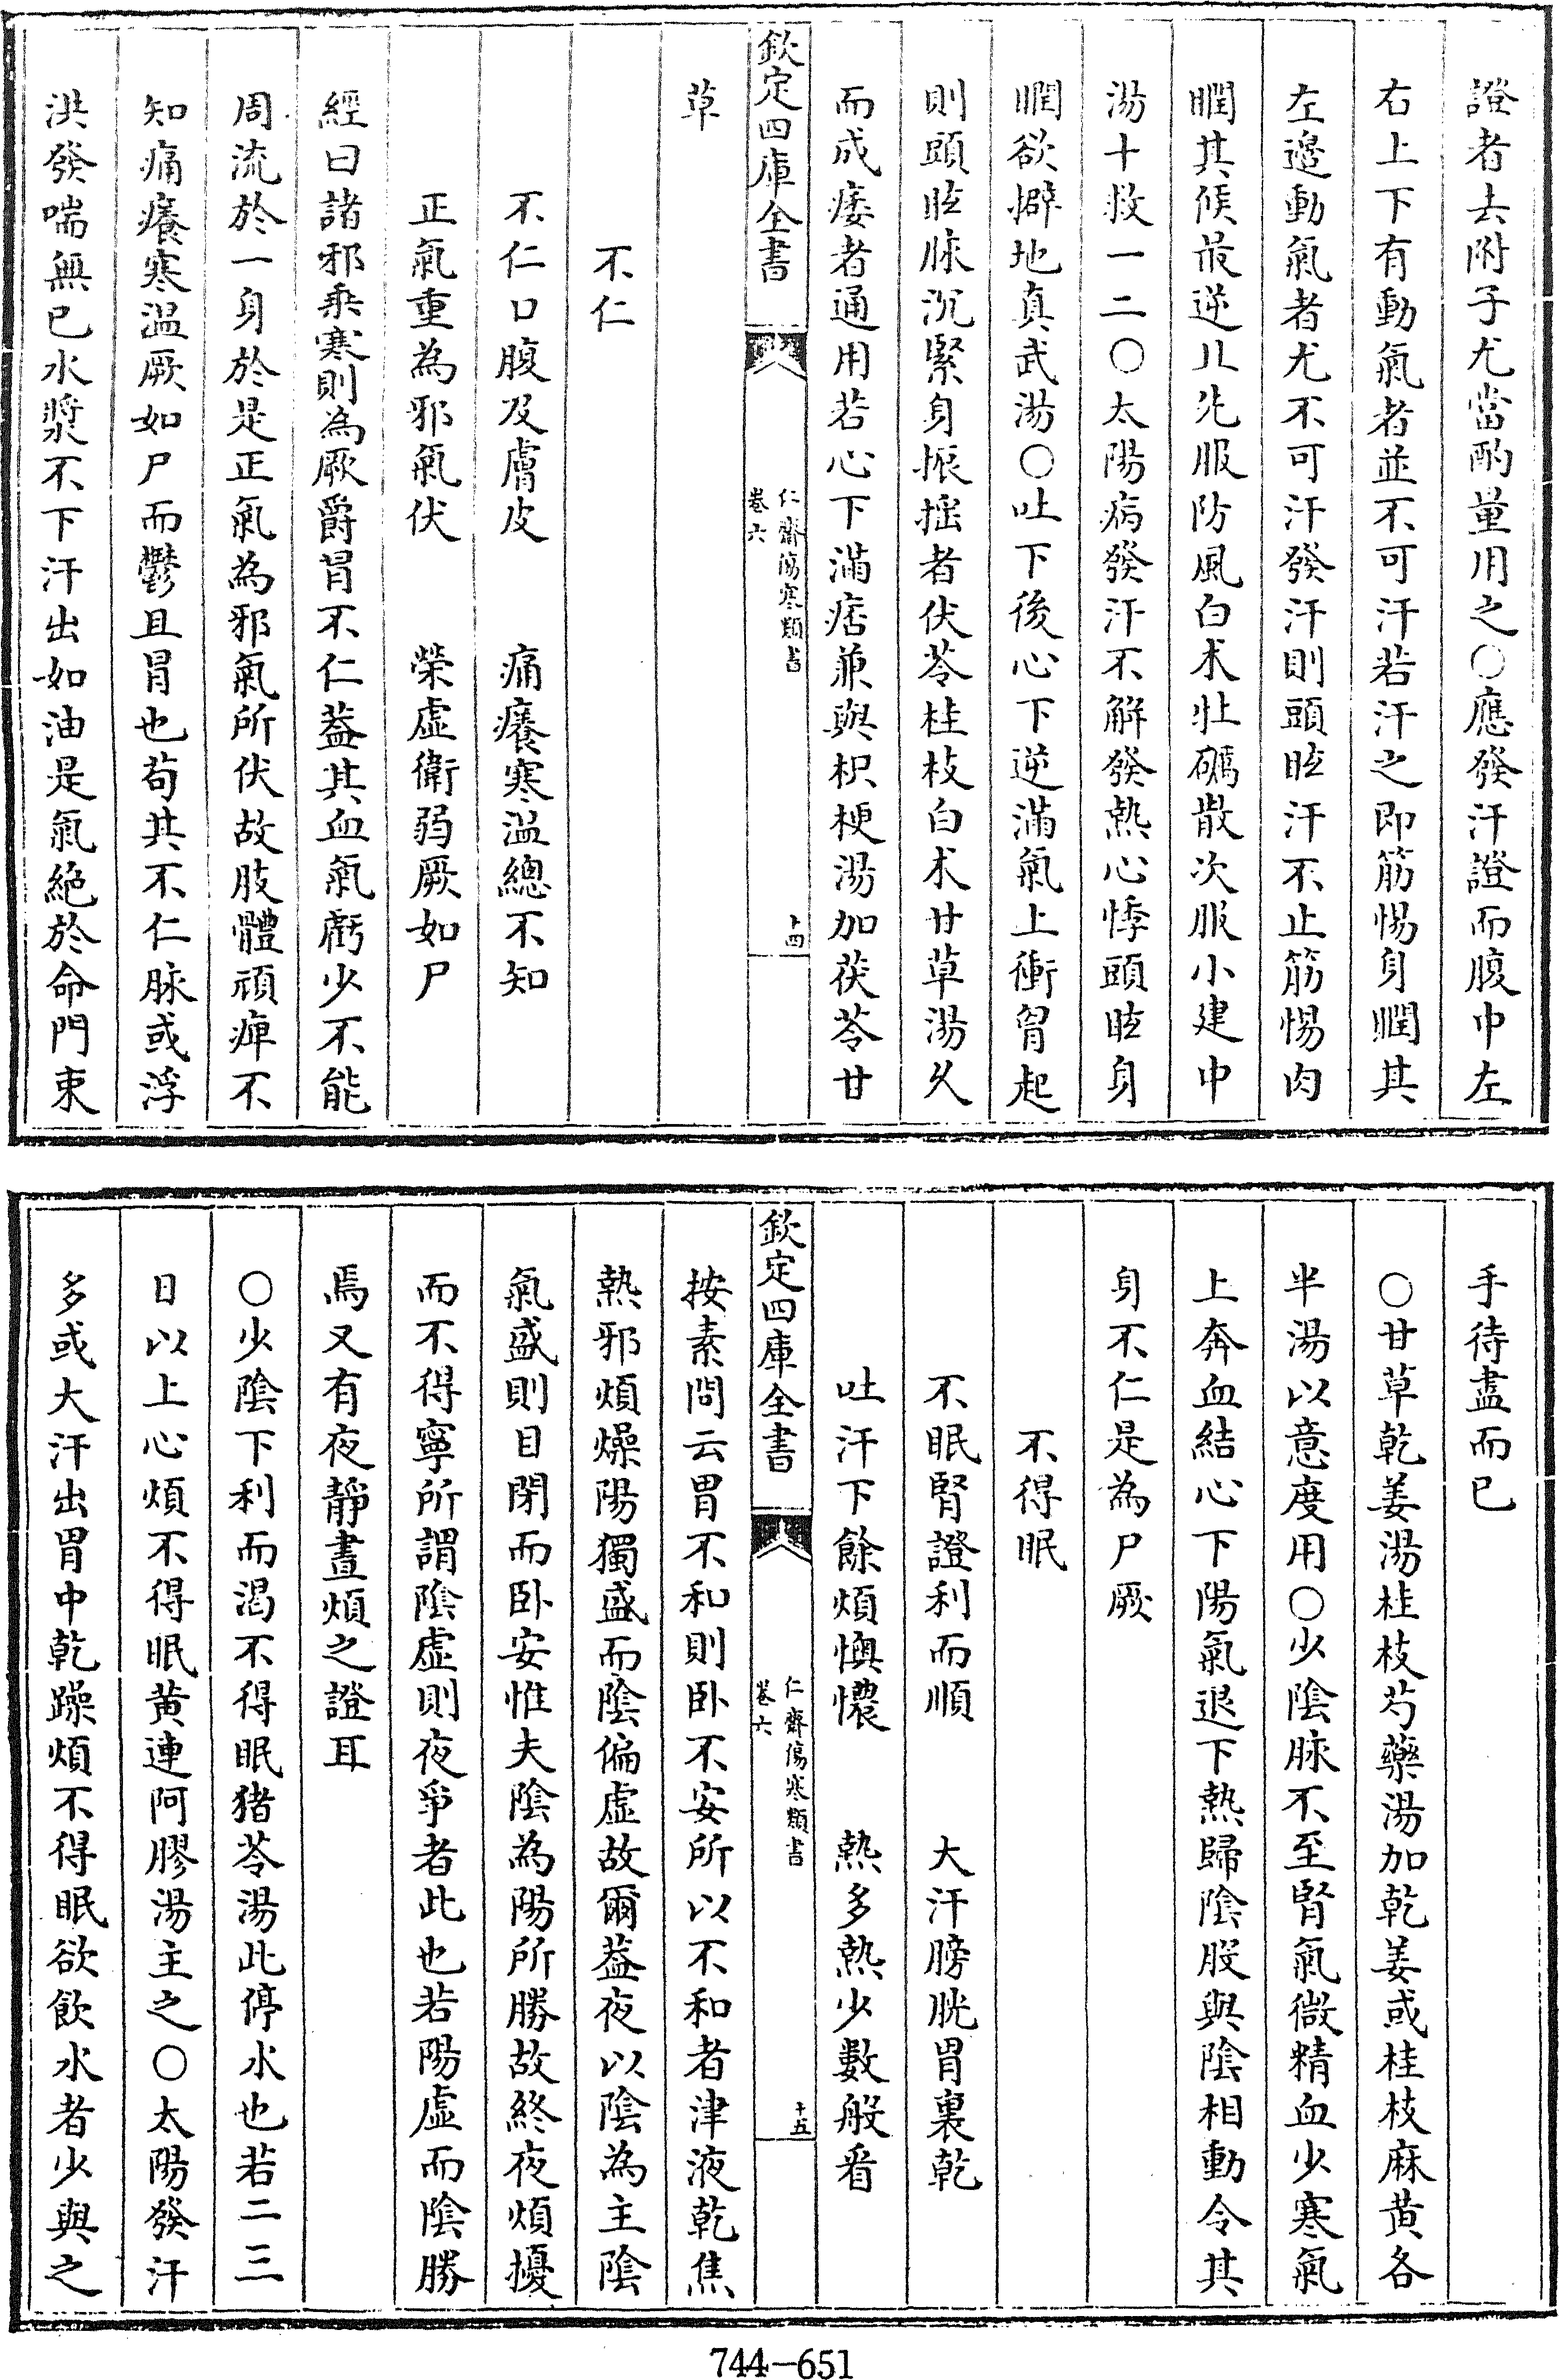 證者去附子尤當酌量用之〇應發汗證而腹中左
右上下有動氣者並不可汗若汗之即筋惕身瞤其
左邉動氣者尤不可汗發汗則頭眩汗不止筋惕肉
瞤其候最逆儿先服防風白术牡礪散次服小建中
湯十救一二〇太陽病發汗不解發熱心悸頭眩身
瞤欲擗地真武湯〇吐下後心下逆滿氣上衝胷起
則頭眩脉沉緊身振揺者伏苓桂枝白术甘草湯久
而成痿者通用若心下滿痞兼與枳梗湯加茯苓甘
欽定四庫全書
仁齋傷寒類書
卷六
十四
草
不仁
不仁口腹及膚皮　痛癢寒溫總不知
正氣重為邪氣伏　榮虛衛弱厥如尸
經曰諸邪乘寒則為厥爵冒不仁葢其血氣虧少不能
周流於一身於是正氣為邪氣所伏故肢體頑痺不
知痛癢寒温厥如尸而鬱且冒也苟其不仁脉或浮
洪發喘無已水漿不下汗出如油是氣絶於命門束
手待盡而已
〇甘草乾姜湯桂枝芍藥湯加乾姜或桂枝麻黄各
半湯以意度用〇少陰脉不至腎氣微精血少寒氣
上奔血結心下陽氣退下熱歸陰股與陰相動令其
身不仁是為尸厥
不得眠
不眠腎證利而順　大汗膀胱胃裏乾
吐汗下餘煩懊憹　熱多熱少數般看
欽定四庫全書
仁齋傷寒類書
卷六
十五
按素問云胃不和則卧不安所以不和者津液乾焦
熱邪煩燥陽獨盛而陰偏虛故爾葢夜以陰為主陰
氣盛則目閉而卧安惟夫陰為陽所勝故終夜煩擾
而不得寧所謂陰虛則夜爭者此也若陽虛而陰勝
焉又有夜靜晝煩之證耳
〇少陰下利而渴不得眠猪苓湯此停水也若二三
日以上心煩不得眠黄連阿膠湯主之〇太陽發汗
多或大汗出胃中乾躁煩不得眠欲飲水者少與之
744-651